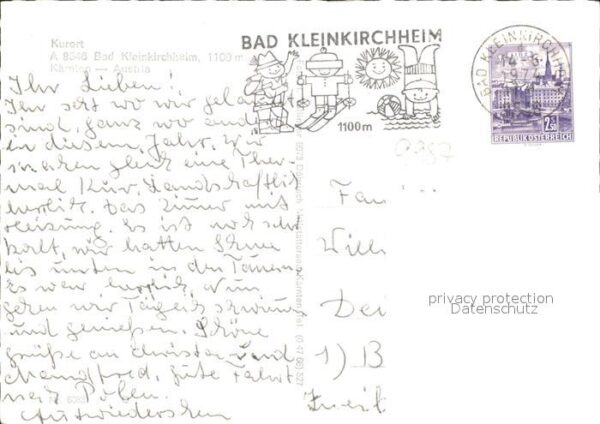 Kurort
A 8546 Bad Kleinkirchheim, 1100 m
Kärnten — Austria
BAD KLEINKIRCHHEIM
1100 m
BAD KLEINKIRCHHEIM
2.50
REPUBLIK ÖSTERREICH
Ihr Lieben!
Ihr seht wo wir gelandet
sind, ganz wo anders
in diesem Jahr. Wir
machen gleich eine Ther-
mal Kur. Landschaftlich
herrlich. Das Zimmer mit
Heizung. Es ist noch sehr
kalt, wir hatten Schnee
bis unten in den Tauern
Es war herrlich, nun
gehen wir täglich schwimm
und genießen. Schöne
Grüße an Christa und
Manfred, gute Fahrt
nach Polen.
Aufwiedersehen
Fam
Willi
Dei
1) B
privacy protection
Datenschutz